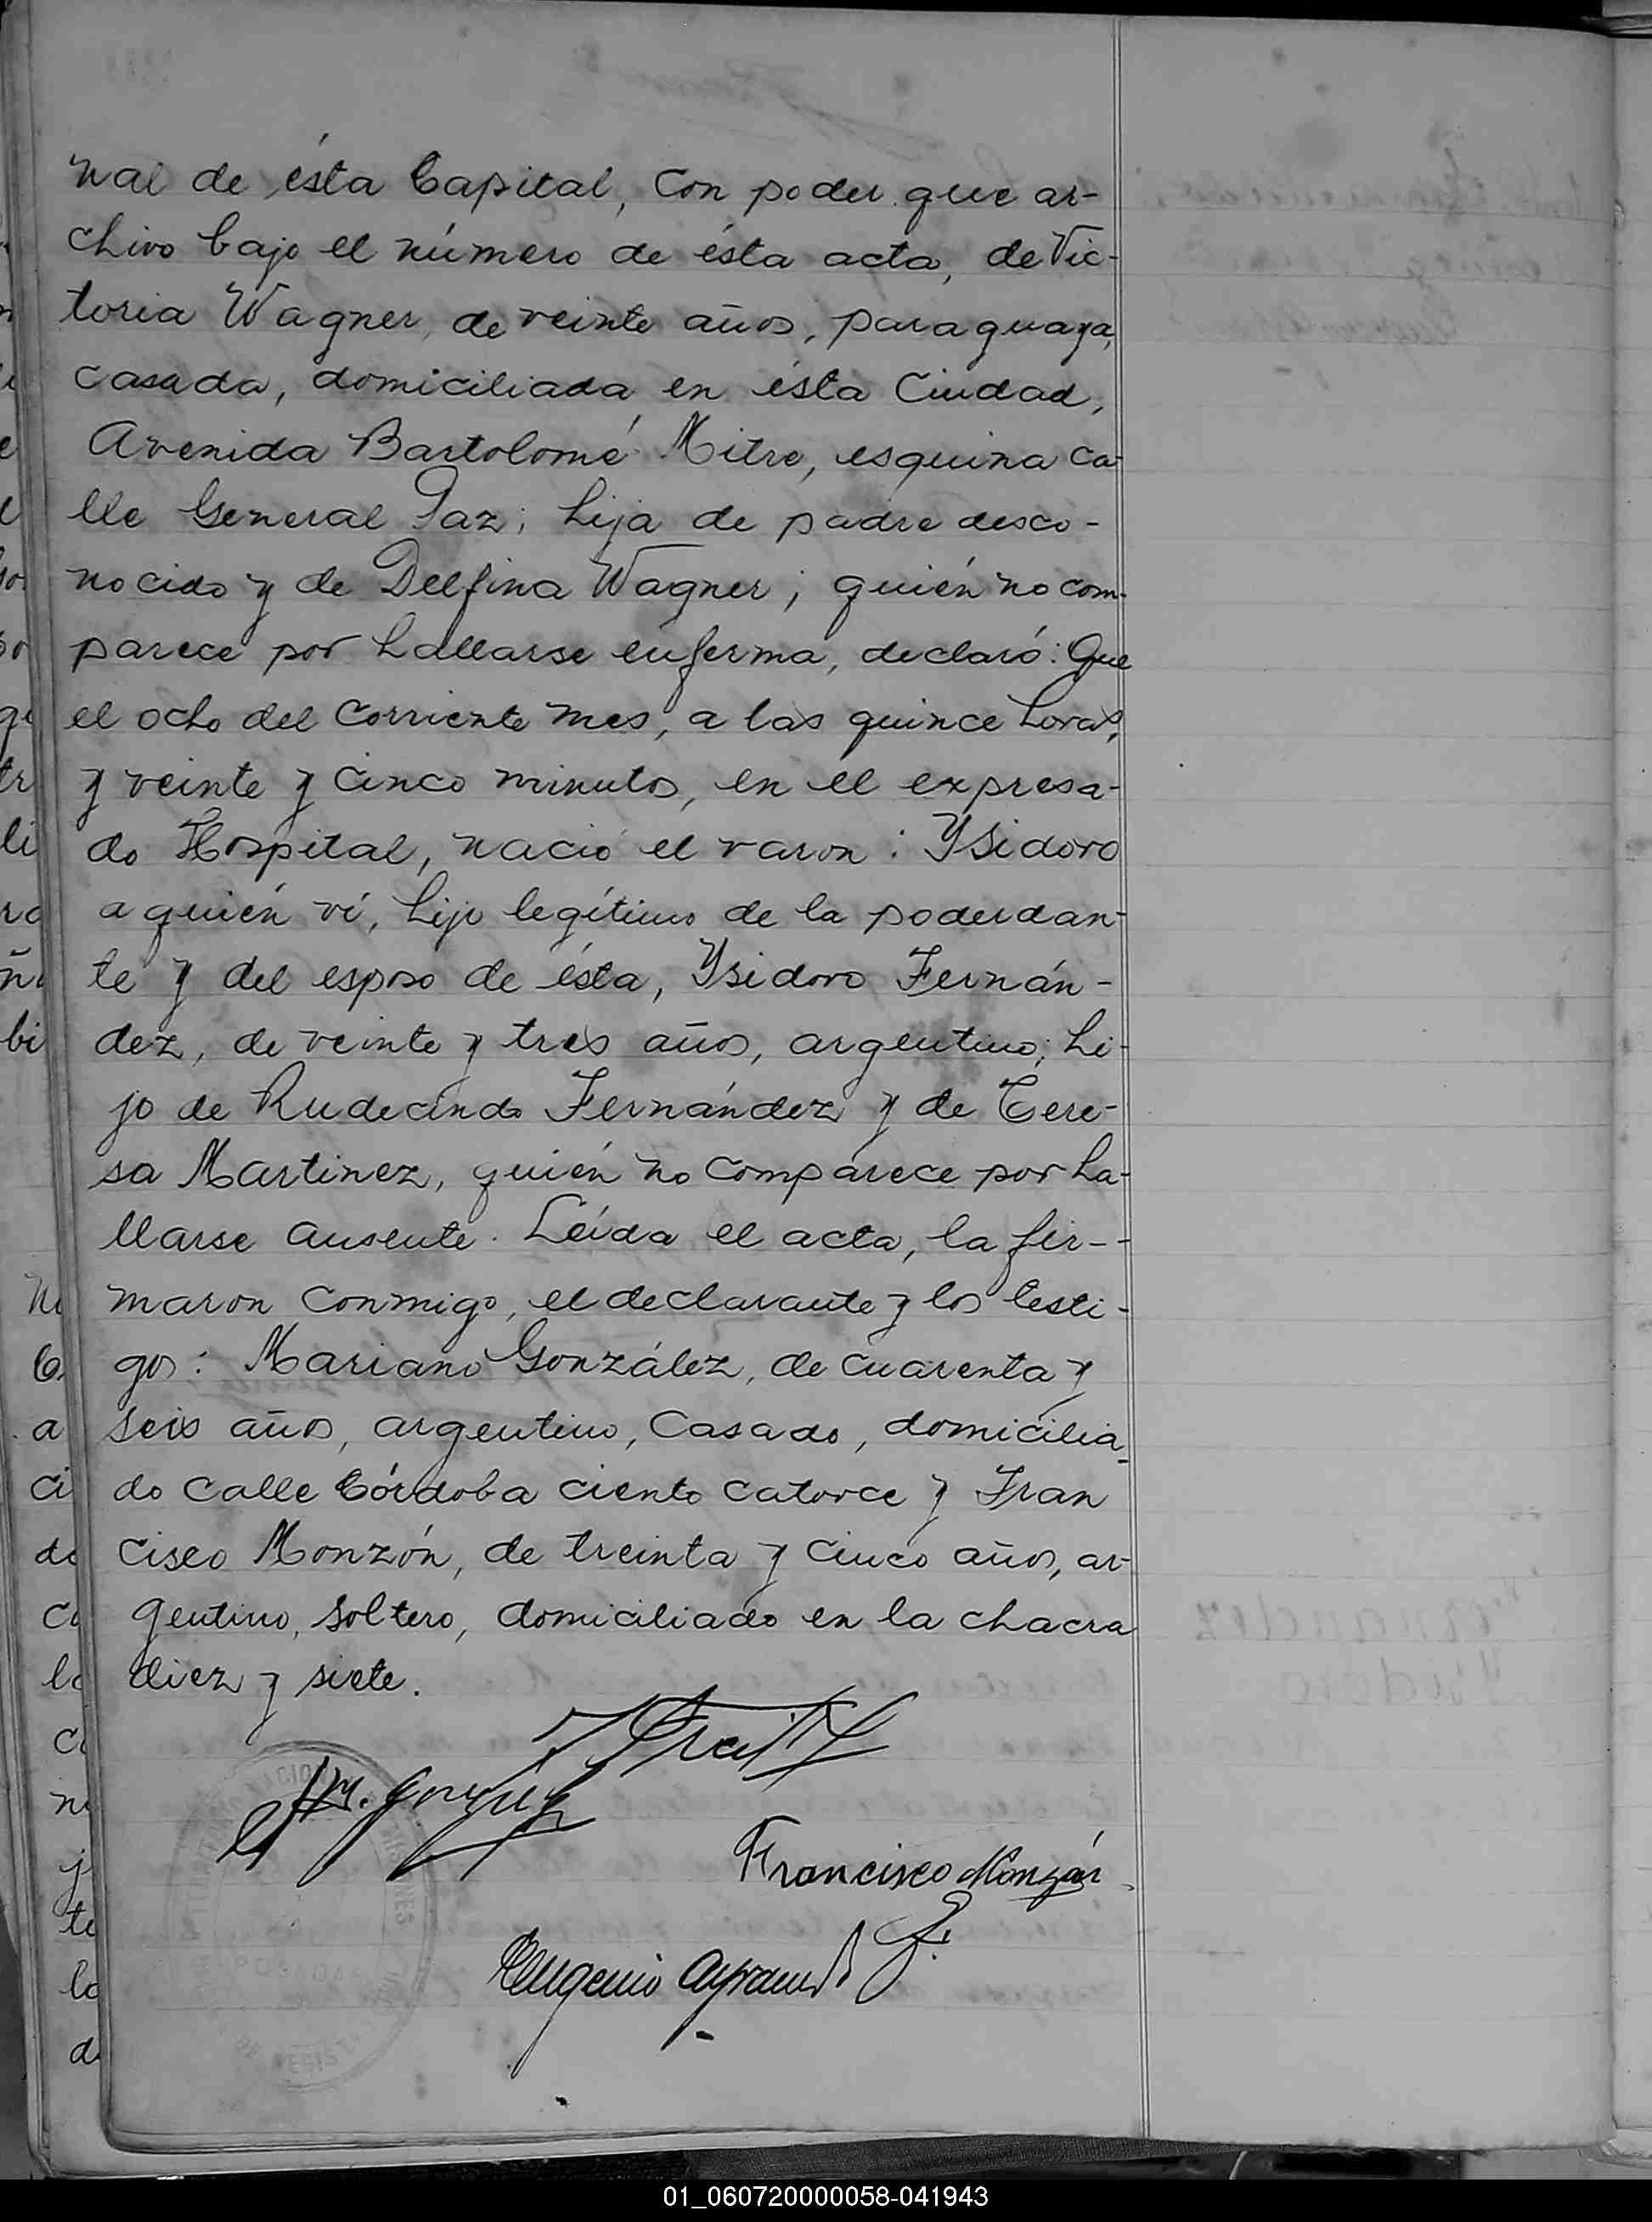 nal de ésta Capital, con poder que ar-
chivo bajo el número de ésta acta, de Vic-
toria Wagner, de veinte años, paraguaya,
casada, domiciliada en ésta Ciudad,
Avenida Bartolomé Mitre, esquina ca-
lle General Paz; hija de padre desco-
nocido y de Delfina Wagner; quién no com-
parece por hallarse enferma, declaró: Que
el ocho del corriente mes, a las quince horas,
y veinte y cinco minutos, en el expresa-
do Hospital, nació el varon: Ysidoro
a quién ví, hijo legítimo de la poderdan-
te y del esposo de ésta, Ysidoro Fernán-
dez, de veinte y tres años, argentino; hi-
jo de Rudecindo Fernández y de Tere-
sa Martinez, quién no comparece por ha-
llarse ausente. Leída el acta, la fir-
maron conmigo, el declarante y los testi-
gos: Mariano González, de cuarenta y
seis años, argentino, casado, domicilia-
do calle Córdoba ciento catorce y Fran
cisco Monzón, de treinta y cinco años, ar-
gentino, soltero, domiciliado en la chacra
diez y siete.
Francisco Monzón
Eugenio
POSADAS
01_060720000058-041943